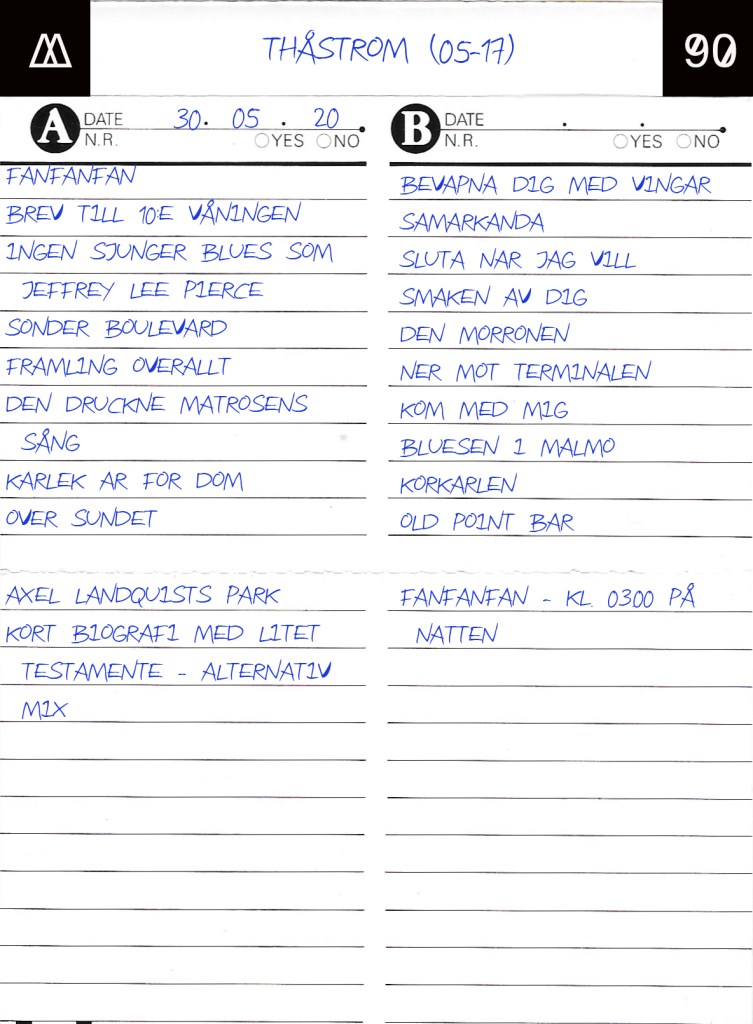 THÅSTROM (05-17)
90
A DATE 30. 05. 20
N.R. YES NO
FANFANFAN
BREV TILL 10:E VÅNINGEN
INGEN SJUNGER BLUES SOM
JEFFREY LEE PIERCE
SONDER BOULEVARD
FRAMLING OVERALLT
DEN DRUCKNE MATROSENS
SÅNG
KARLEK AR FOR DOM
OVER SUNDET
AXEL LANDQUISTS PARK
KORT BIOGRAFI MED LITET
TESTAMENTE - ALTERNATIV
MIX
B DATE . .
N.R. YES NO
BEVAPNA DIG MED VINGAR
SAMARKANDA
SLUTA NAR JAG VILL
SMAKEN AV DIG
DEN MORRONEN
NER MOT TERMINALEN
KOM MED MIG
BLUESEN I MALMO
KORKARLEN
OLD POINT BAR
FANFANFAN - KL. 0300 PÅ
NATTEN